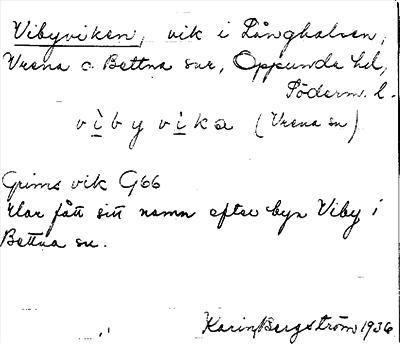 Vibyviken, vik i Långhalsen,
Vrena o. Bettna snr, Oppunda hd,
Söderm. l.
vìbyvìka (Vrena sn)
Grims vik G66
Har fått sitt namn efter byn Viby i
Bettna sn.
Karin Bergström 1936